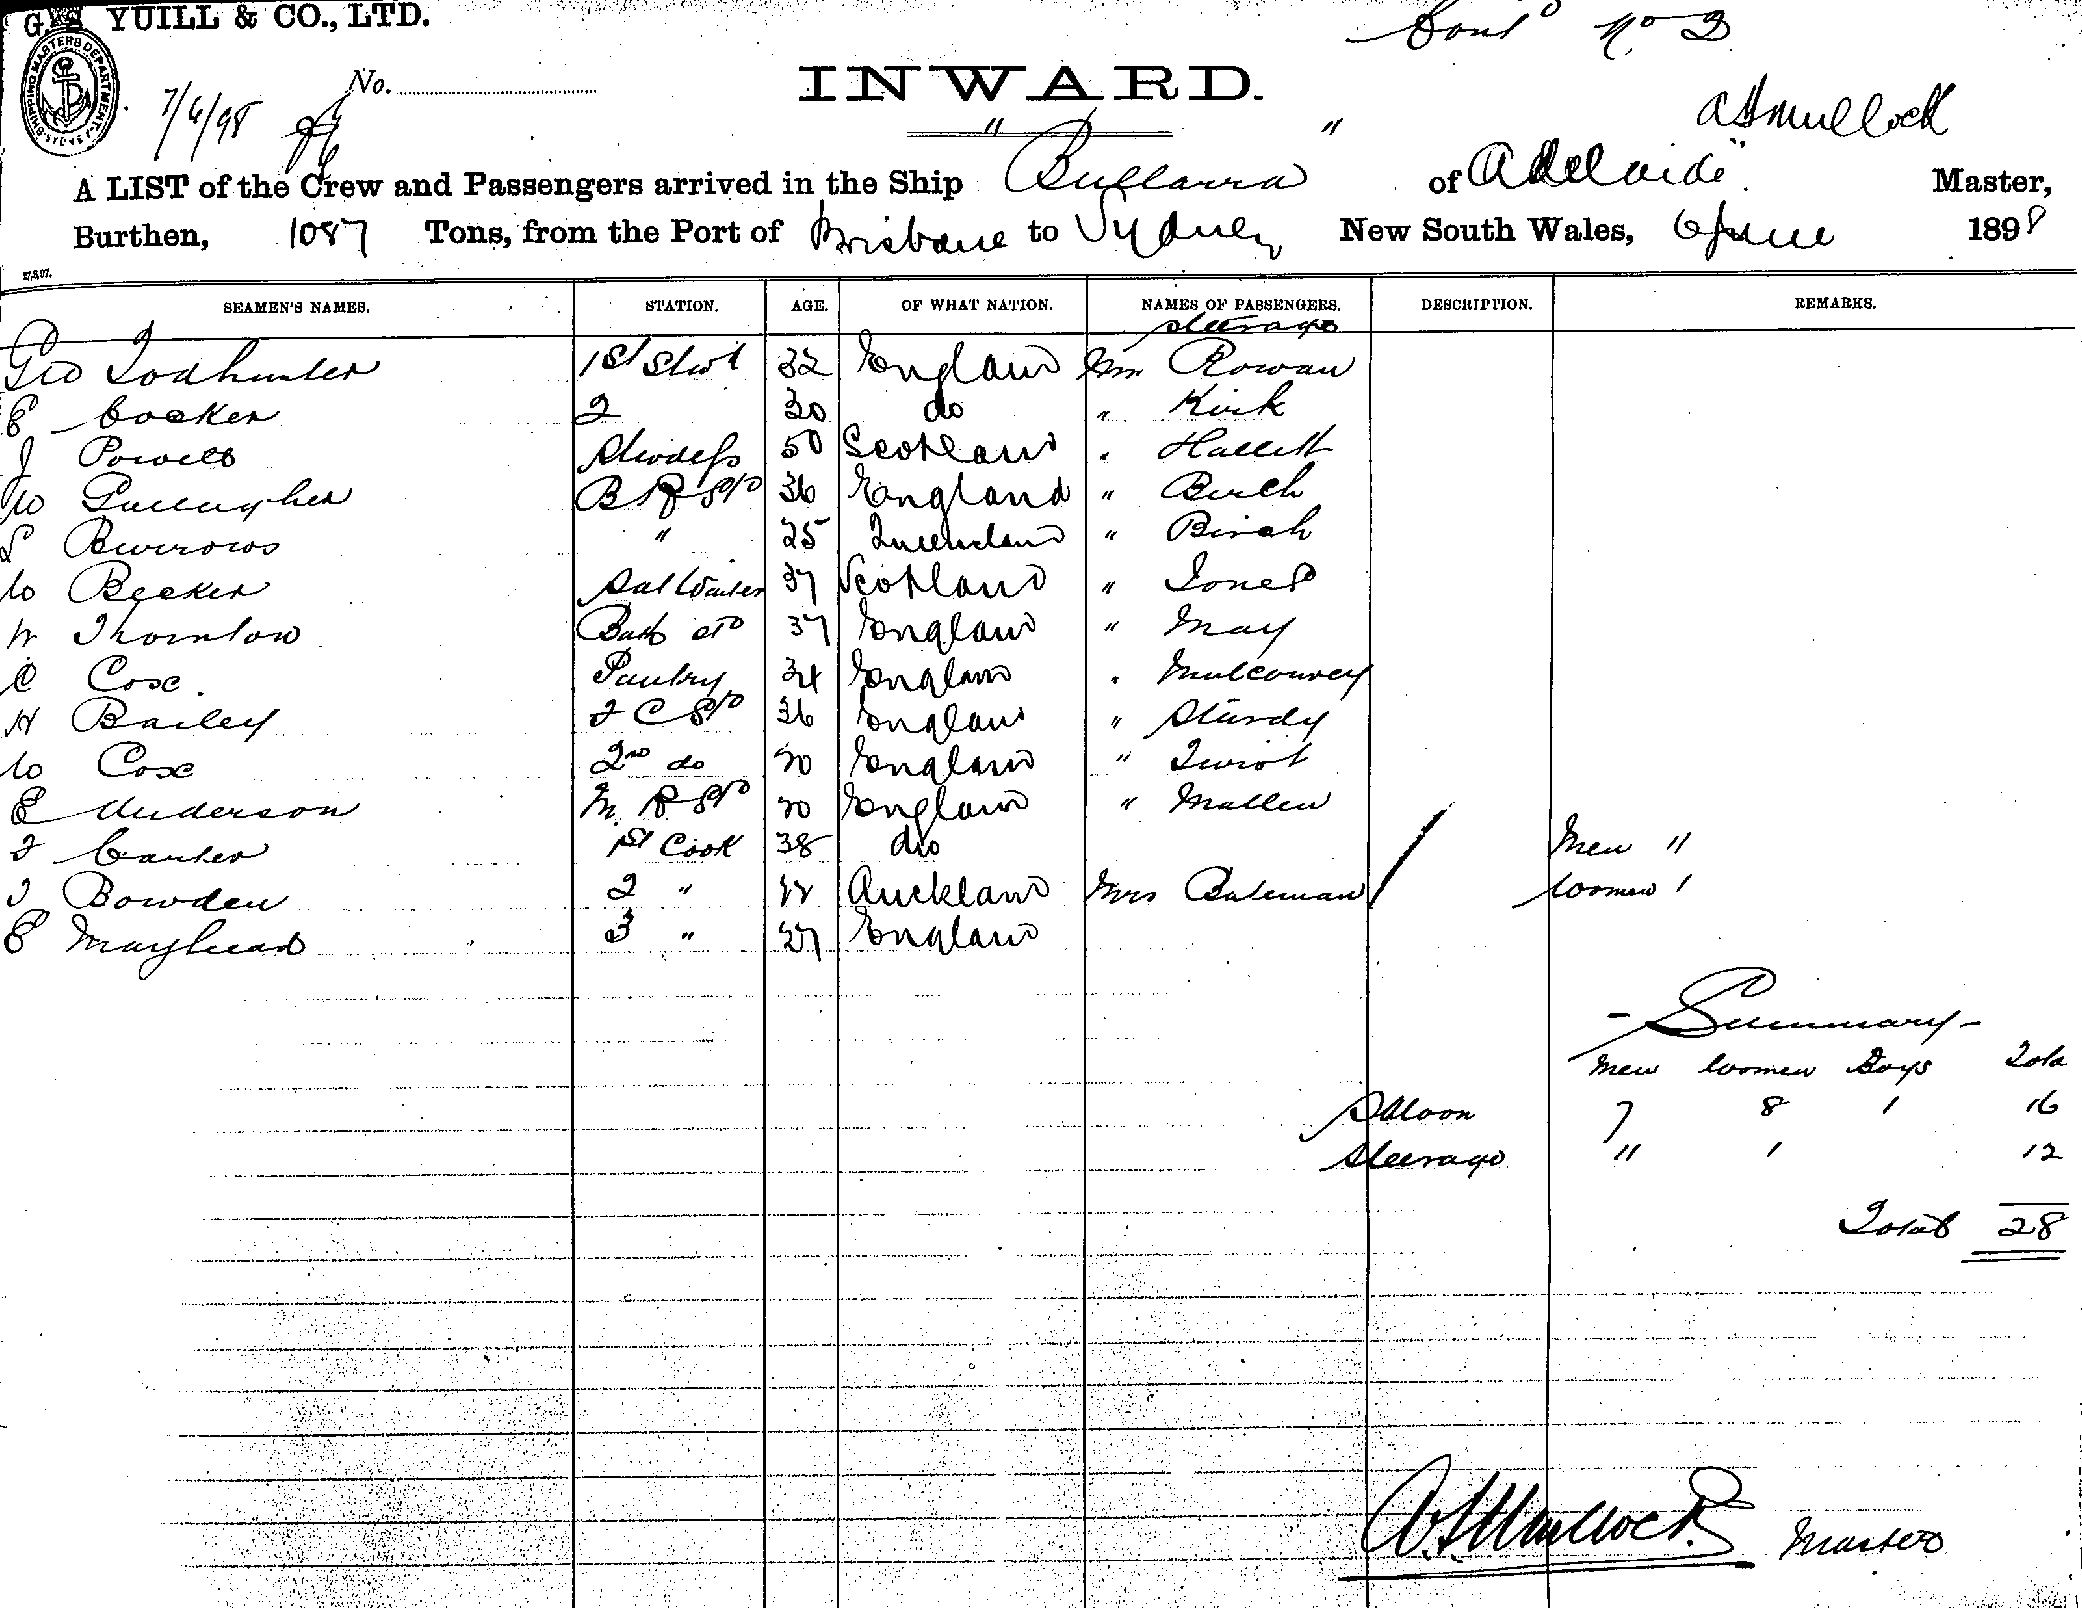 YUILL & CO., LTD.
Cont^d No 2
SHIPPING MASTERS DEPARTMENT SYDNEY
No.
7/6/98
INWARD.
A S Mullock
A LIST of the Crew and Passengers arrived in the Ship " Bullarra " of Adelaide Master,
Burthen, 1087 Tons, from the Port of Brisbane to Sydney New South Wales, 6 June 1898
SEAMEN'S NAMES. STATION. AGE. OF WHAT NATION. NAMES OF PASSENGERS. DESCRIPTION. REMARKS.
Steerage
Geo Todhunter 1st Stwd 32 England Mr Rowan
E Cocker 2 30 do " Kirk
J Powell Stwdess 50 Scotland " Hallett
W Gallagher B R Std 36 England " Birch
S Burrows " 25 Queensland " Birch
W Becker Sal Waiter 37 Scotland " Jones
W Thornton Bath std 37 England " May
C Cox Pantry 34 England " Mulconrey
H Bailey F C Std 36 England " Sturdy
W Cox 2nd do 20 England " Twist
E Anderson M R Std 20 England " Mallen
F Carter 1st Cook 38 do Men 11
J Bowden 2 " 22 Auckland Mrs Bateman / Women 1
E Mayhead 3 " 27 England
- Summary -
Men Women Boys Total
Saloon 7 8 1 16
Steerage 11 1 12
Total 28
A. S. Mullock Master